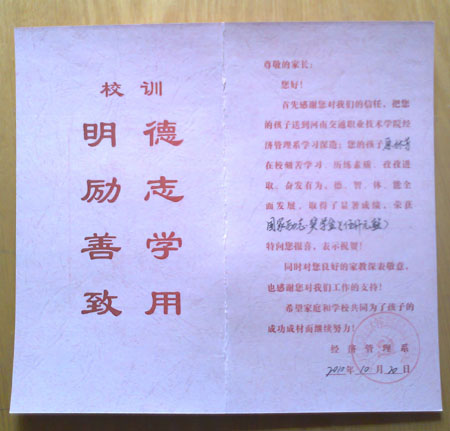 校训
明德
励志
善学
致用
尊敬的家长:
您好!
首先感谢您对我们的信任,把您
的孩子送到河南交通职业技术学院经
济管理系学习深造;您的孩子
在校刻苦学习、历练素质、孜孜进
取、奋发有为,德、智、体、能全
面发展,取得了显著成绩,荣获
国家励志奖学金(伍仟元整)
特向您报喜,表示祝贺!
同时对您良好的家教深表敬意,
也感谢您对我们工作的支持!
希望家庭和学校共同为了孩子的
成功成材而继续努力!
经济管理系
2010年10月20日